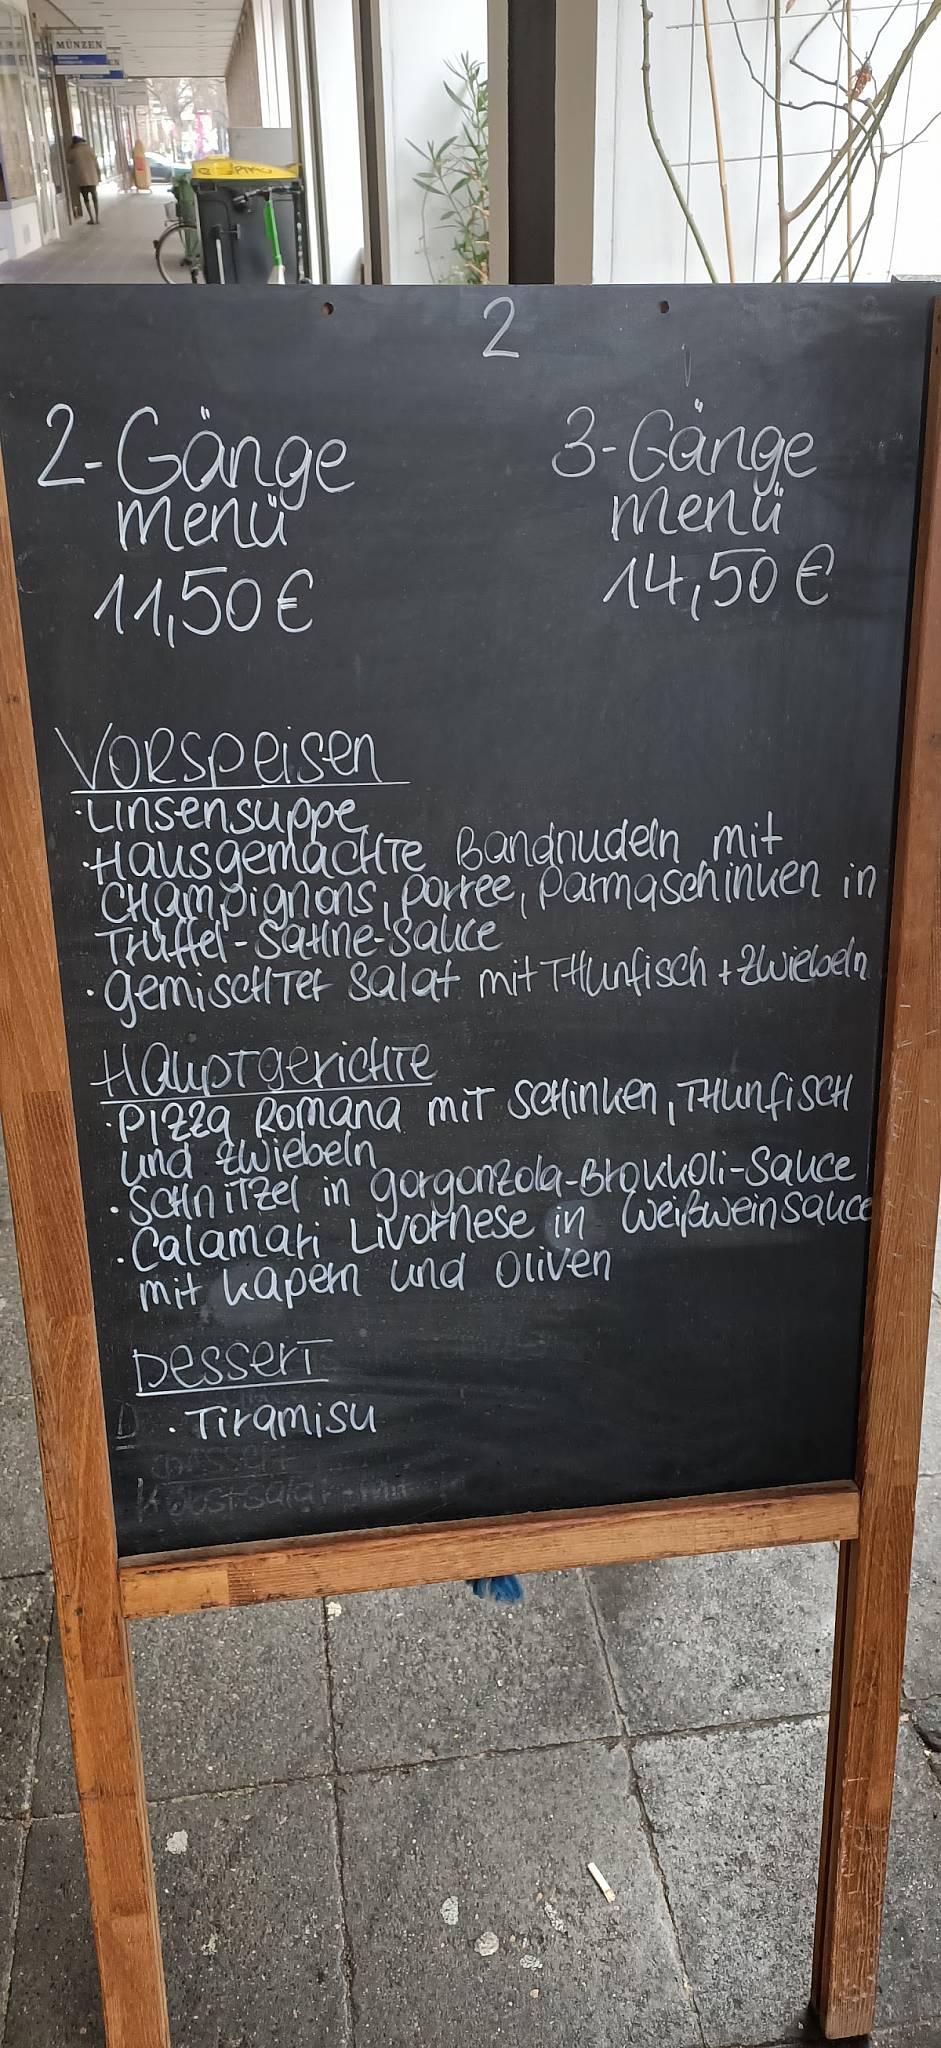 MÜNZEN
2
2-Gänge
menü
11,50€
3-Gänge
menü
14,50€
Vorspeisen
·Linsensuppe
·Hausgemachte Bandnudeln mit
Champignons, Porree, Parmaschinken in
Trüffel-Sahne-Sauce
·gemischter Salat mit Thunfisch + Zwiebeln
Hauptgerichte
·Pizza Romana mit Schinken, Thunfisch
und Zwiebeln
·Schnitzel in Gorgonzola-Brokkoli-Sauce
·Calamari Livornese in Weißweinsauce
mit Kapern und Oliven
Dessert
·Tiramisu